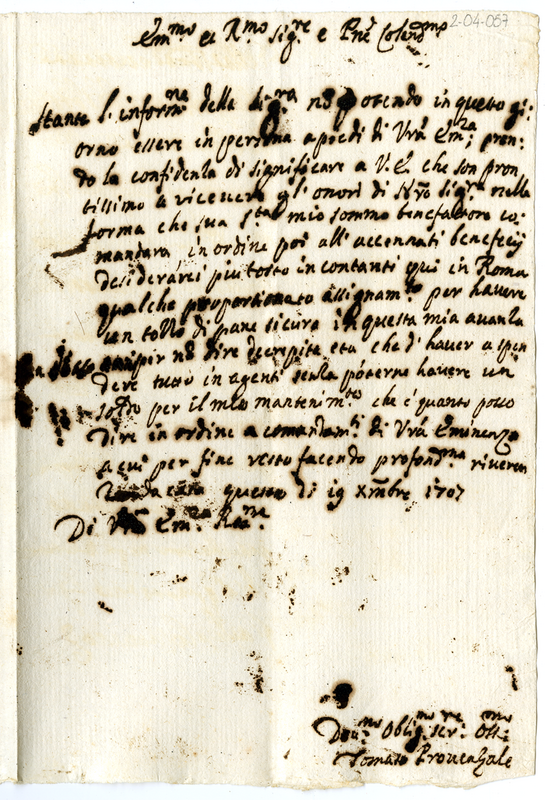 2-04-057
Em.mo et R.mo Sig.re e Pne Colend.mo
Stante l'inform.ne della lig.ra nõ potendo in questo gi:
orno essere in persona a piedi di Vrã Em.za; pren:
do la confidenza di significare a V. E. che son pron
tissimo à ricevere gl'onori di N.ro Sig.re nella
forma che sua S.tà mio sommo benefattore co:
mandarà, in ordine poi all'accennati beneficij
desiderarei più tosto in contanti qui in Roma
qualche proportionato assignam.to per havere
un tozzo di pane sicuro in questa mia avanza
nõ dire decrepita età che d'haver a spen
dere tutto in agenti senza poterne havere un
soldo per il mio mantenim.to che è quanto posso
dire in ordine a comandam.ti di Vrã Eminenza
a cui per fine resto facendo profond.ma riveren
questo dì 19 Xmbre 1707
Di Vrã Em.za R.ma
Dev.mo Oblig.mo ser.re
Tomaso Provenzale